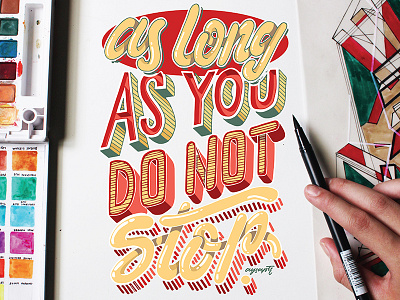 as long
AS YOU
DO NOT
Stop.